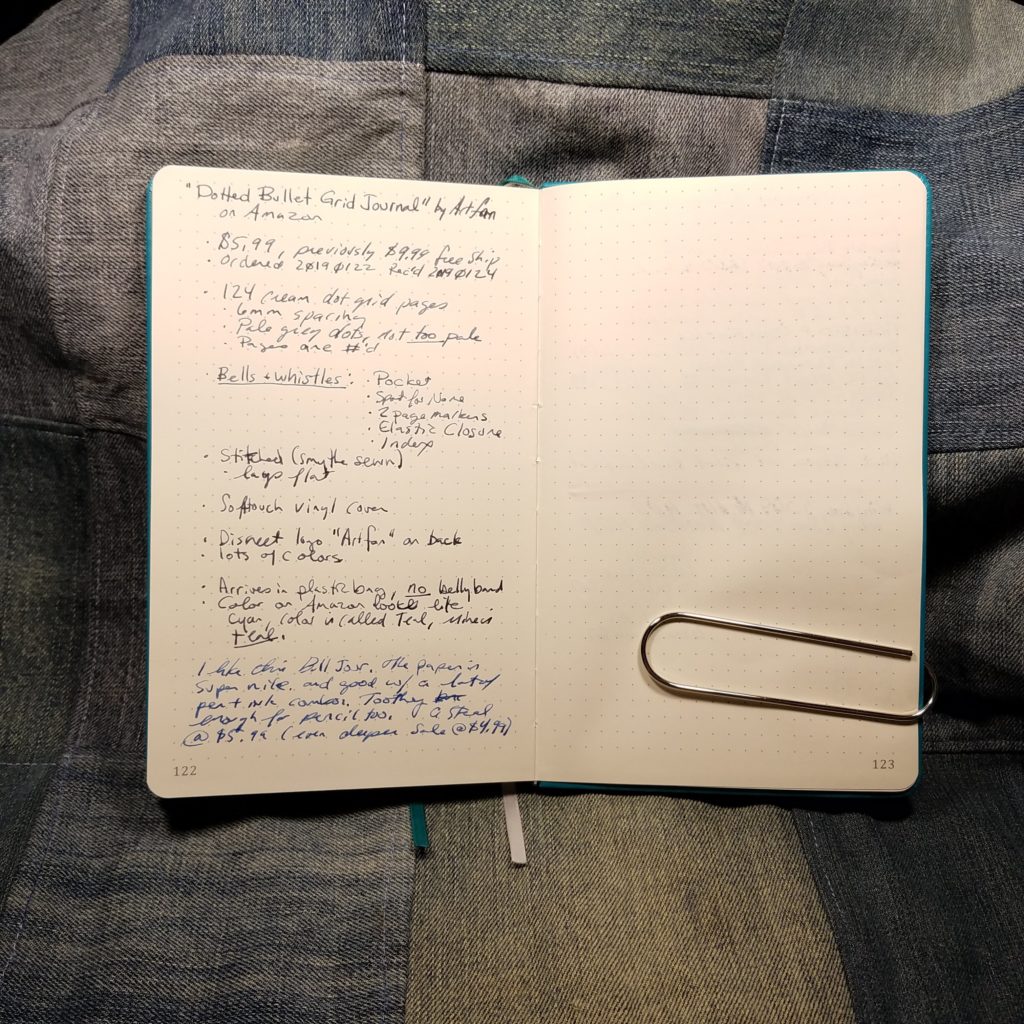 "Dotted Bullet Grid Journal" by Artfan
on Amazon
· $5.99, previously $9.99 free ship
· Ordered 20190122 Rec'd 20190124
· 124 cream dot grid pages
· 6mm spacing
· Pale grey dots, not too pale
· Pages are #'d
· Bells + whistles: · Pocket
· Spot for Name
· 2 page markers
· Elastic Closure
· Index
· Stitched (smythe sewn)
lays flat
· Softouch vinyl cover
· Discreet logo "Artfan" on back
· lots of colors
· Arrives in plastic bag, no bellyband
· Color on Amazon looks like
cyan, color is called Teal,
teal.
I like this Bull Jour. The paper is
super nice. and good w/ a lot of
pen + ink combos. Toothy
enough for pencil too. A steal
@ $5.99 (even deeper sale @ $4.99)
122
123